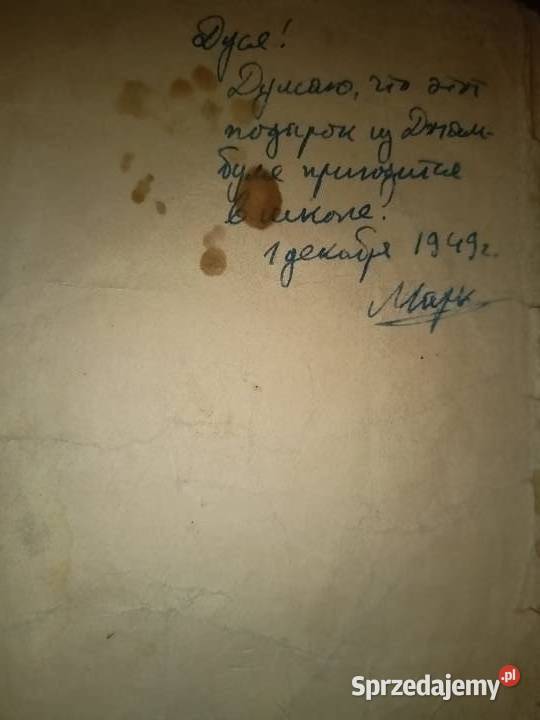 Дуся!
Думаю, что этот
подарок из Джам-
буле пригодится
в школе!
1 декабря 1949 г.
Марк
Sprzedajemy.pl